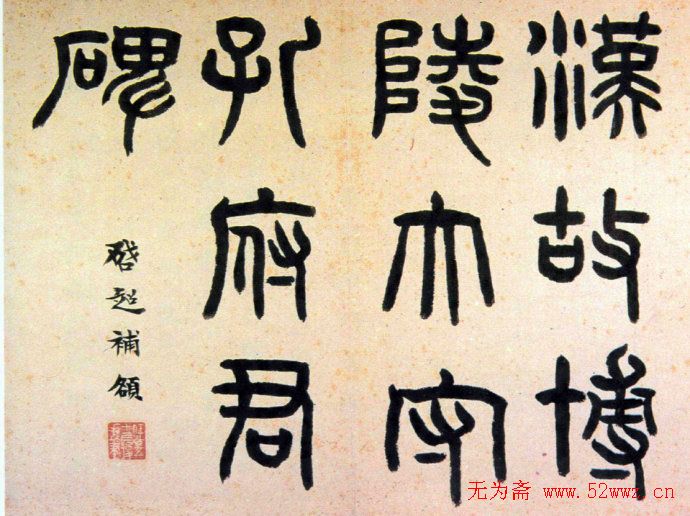 漢故博
陵大守
孔府君
碑
啓超補額
无为斋 www.52wwz.cn